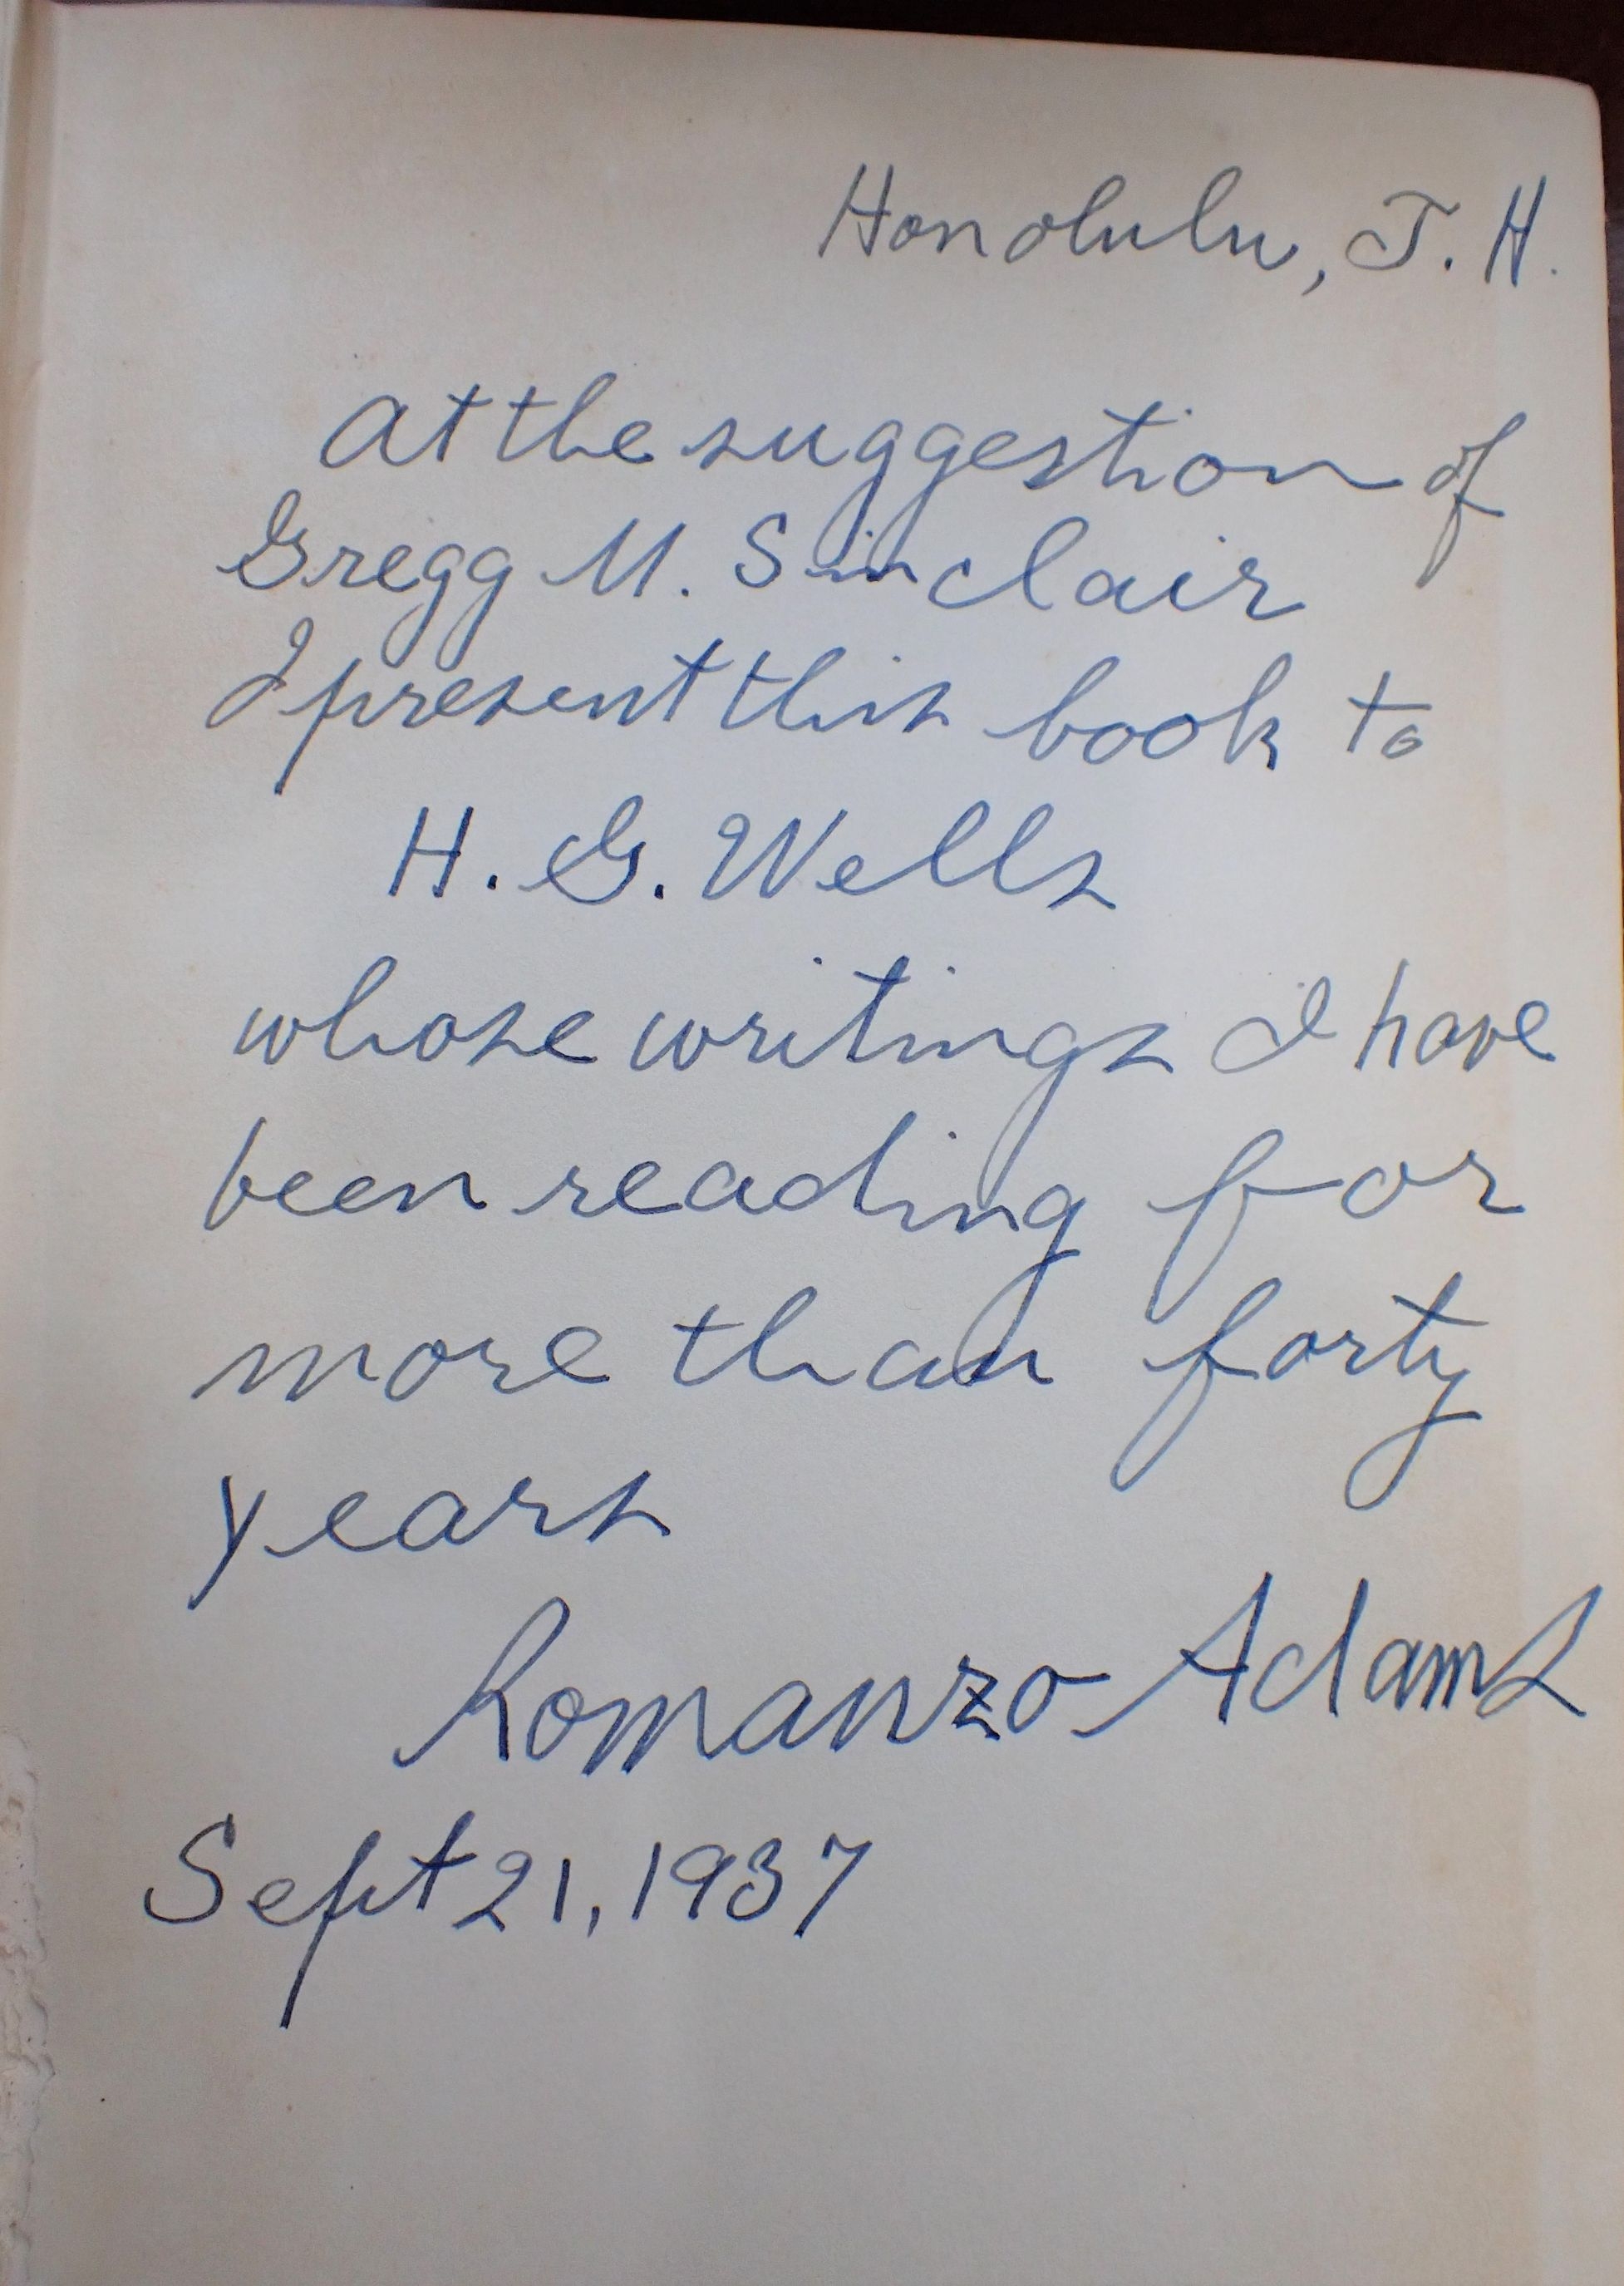 Honolulu, T. H.
At the suggestion of
Gregg M. Sinclair
I present this book to
H. G. Wells
whose writings I have
been reading for
more than forty
years
Romanzo Adams
Sept 21, 1937